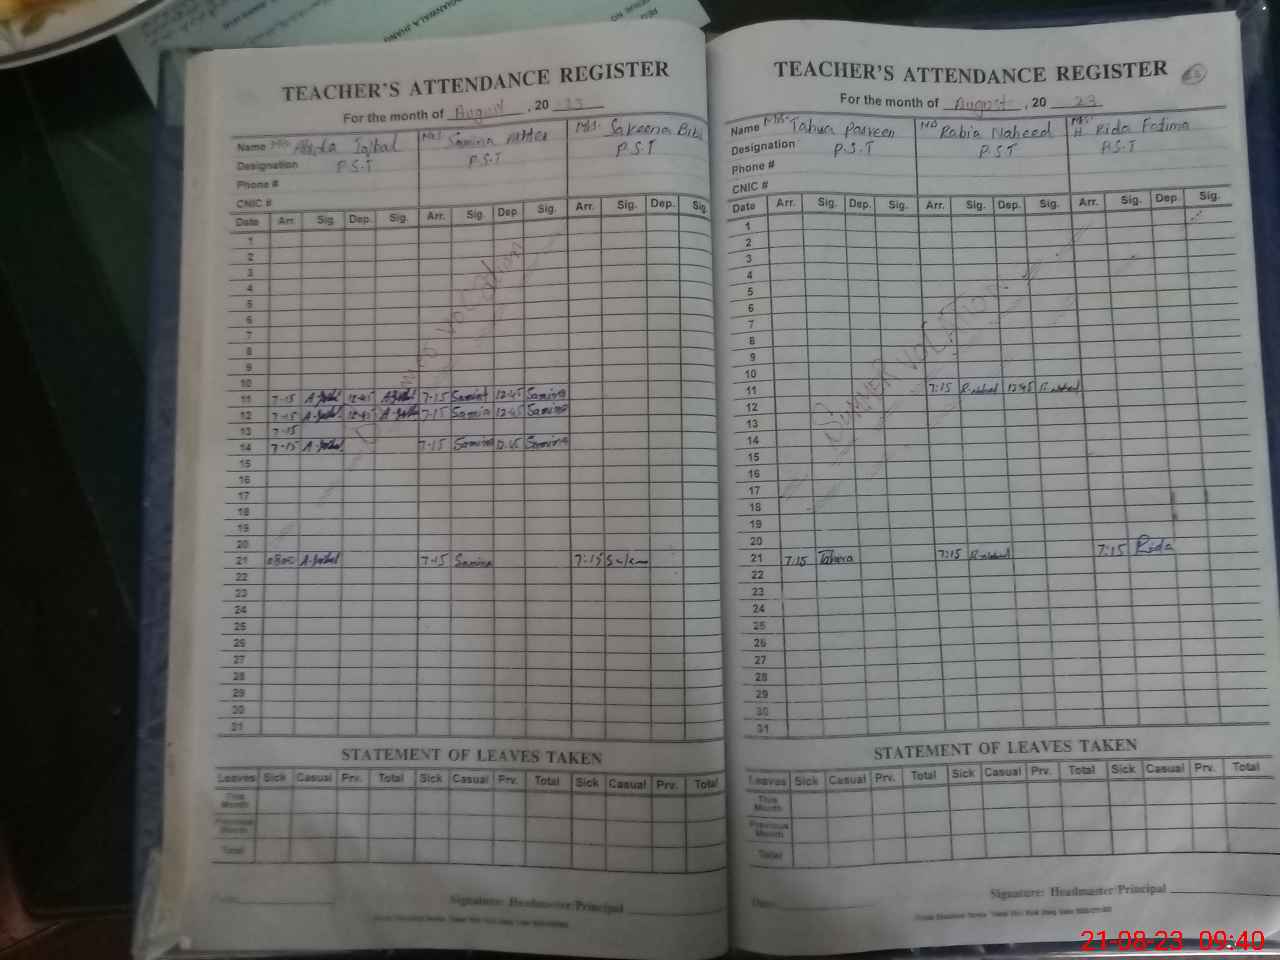 TEACHER'S ATTENDANCE REGISTER
For the month of August , 20 23
Name Mrs. Abida Iqbal
Designation P.S.T
Phone #
CNIC #
Samina Akhter
P.S.T
Mrs. Sakeena Bibi
P.S.T
Date Arr. Sig. Dep. Sig. Arr. Sig. Dep. Sig. Arr. Sig. Dep. Sig.
1
2
3
4
5
6
7
8
9
10
11 7-15 A.Iqbal 12-45 A.Iqbal 7-15 Samina 12-45 Samina
12 7-15 A.Iqbal 12-45 A.Iqbal 7-15 Samina 12-45 Samina
13 7-15
14 7-15 A.Iqbal 7-15 Samina Samina
15
16
17
18
19
20
21 A.Iqbal 7-15 Samina 7:15
22
23
24
25
26
27
28
29
30
31
VOCATION
STATEMENT OF LEAVES TAKEN
Leaves Sick Casual Prv. Total Sick Casual Prv. Total Sick Casual Prv. Total
This Month
Previous Month
Total
Signature: Headmaster/Principal
TEACHER'S ATTENDANCE REGISTER
For the month of August , 20 23
Name Mrs. Tahira Parveen
Designation P.S.T
Phone #
CNIC #
Rabia Naheed
P.S.T
Rida Fatima
P.S.T
Date Arr. Sig. Dep. Sig. Arr. Sig. Dep. Sig. Arr. Sig. Dep. Sig.
1
2
3
4
5
6
7
8
9
10
11 7:15 12:45
12
13
14
15
16
17
18
19
20
21 7:15 Tahira 7:15 7:15 Rida
22
23
24
25
26
27
28
29
30
31
SUMMER VOCATION
STATEMENT OF LEAVES TAKEN
Leaves Sick Casual Prv. Total Sick Casual Prv. Total Sick Casual Prv. Total
This Month
Previous Month
Total
Date
Signature: Headmaster/Principal
21-08-23 09:40